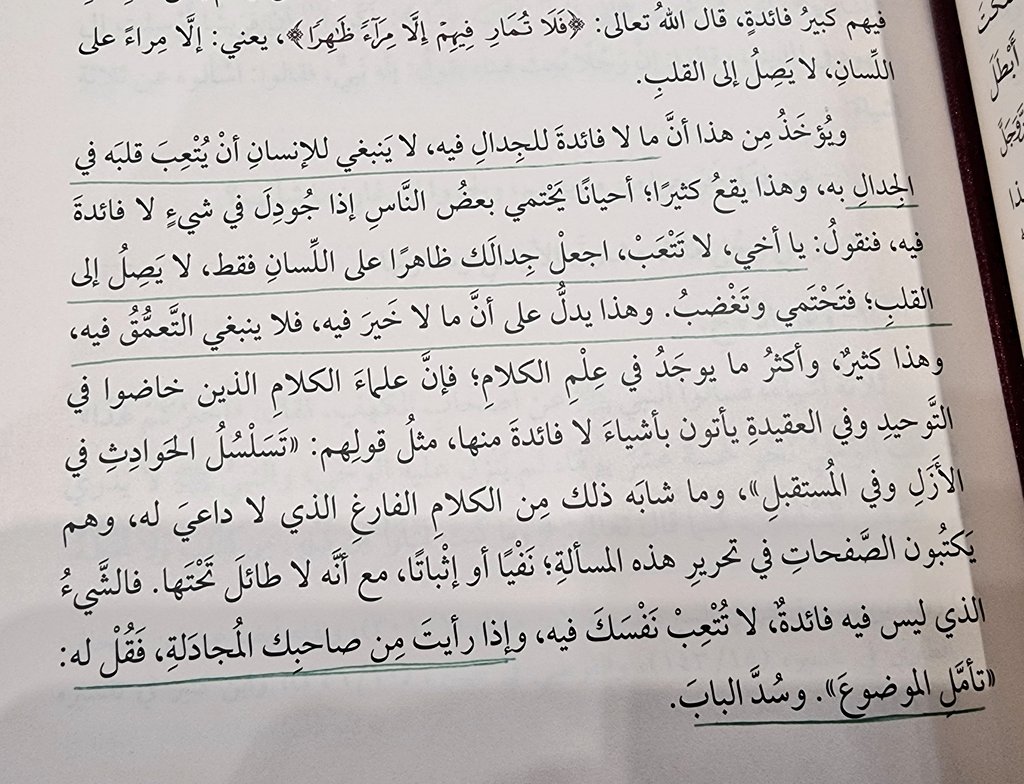 فيهم كبيرُ فائدةٍ، قال اللهُ تعالى: ﴿فَلَا تُمَارِ فِيهِمْ إِلَّا مِرَآءً ظَٰهِرًا﴾، يعني: إلَّا مِراءً على
اللِّسانِ، لا يَصِلُ إلى القلبِ.
ويُؤخَذُ مِن هذا أنَّ ما لا فائدةَ للجِدالِ فيه، لا يَنبغي للإنسانِ أنْ يُتْعِبَ قلبَه في
الجِدالِ به، وهذا يقعُ كثيرًا؛ أحيانًا يَحْتمي بعضُ النَّاسِ إذا جُودِلَ في شيءٍ لا فائدةَ
فيه، فنقولُ: يا أخي، لا تَتْعَبْ، اجعلْ جِدالَك ظاهرًا على اللِّسانِ فقط، لا يَصِلُ إلى
القلبِ؛ فتَحْتَمي وتَغْضبُ. وهذا يدلُّ على أنَّ ما لا خَيرَ فيه، فلا ينبغي التَّعمُّقُ فيه،
وهذا كثيرٌ، وأكثرُ ما يوجَدُ في عِلْمِ الكلامِ؛ فإنَّ علماءَ الكلامِ الذين خاضوا في
التَّوحيدِ وفي العقيدةِ يأتون بأشياءَ لا فائدةَ منها، مثلُ قولِهم: «تَسَلْسُلُ الحَوادِثِ في
الأزَلِ وفي المُستقبلِ»، وما شابَه ذلك مِن الكلامِ الفارغِ الذي لا داعيَ له، وهم
يَكتبُون الصَّفحاتِ في تحريرِ هذه المسألةِ؛ نَفْيًا أو إثْباتًا، مع أنَّه لا طائلَ تَحْتَها. فالشَّيءُ
الذي ليس فيه فائدةٌ، لا تُتْعِبْ نَفْسَكَ فيه، وإذا رأيتَ مِن صاحبِك المُجادَلةِ، فَقُلْ له:
«تأمَّلِ الموضوعَ». وسُدَّ البابَ.
أبْطَلَ